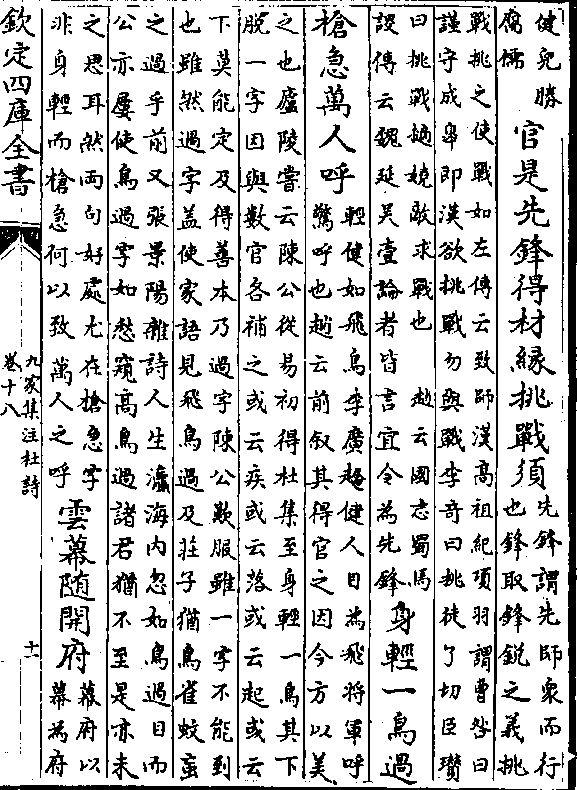 健兒勝
腐儒
官是先鋒得材縁挑戰須
先鋒謂先師衆而行
也鋒取鋒銳之義挑
戰挑之使戰如左傳云致師漢高祖紀項羽謂曹咎曰
謹守成臯即漢欲挑戰勿與戰李竒曰挑徒了切臣瓚
曰挑戰擿嬈敵求戰也 趙云國志蜀馬
謖傳云魏延吳壹論者皆言宜令為先鋒
身輕一鳥過
槍急萬人呼
輕健如飛鳥李廣趫健人目為飛將軍呼
驚呼也趙云前叙其得官之因今方以美
之也廬陵嘗云陳公從易初得杜集至身輕一鳥其下
脫一字因與數官各補之或云疾或云落或云起或云
下莫能定及得善本乃過字陳公歎服雖一字不能到
也雖然過字蓋使家語見飛鳥過及莊子猶鳥雀蚊䖟
之過乎前又張景陽雜詩人生瀛海内忽如鳥過目而
公亦屢使鳥過字如愁窺高鳥過諸君猶不至是亦未
之思耳然兩句好處尤在槍急字
非身輕而槍急何以致萬人之呼
雲幕随開府
幕府以
幕為府
欽定四庫全書
九家集注杜詩
卷十八
十一